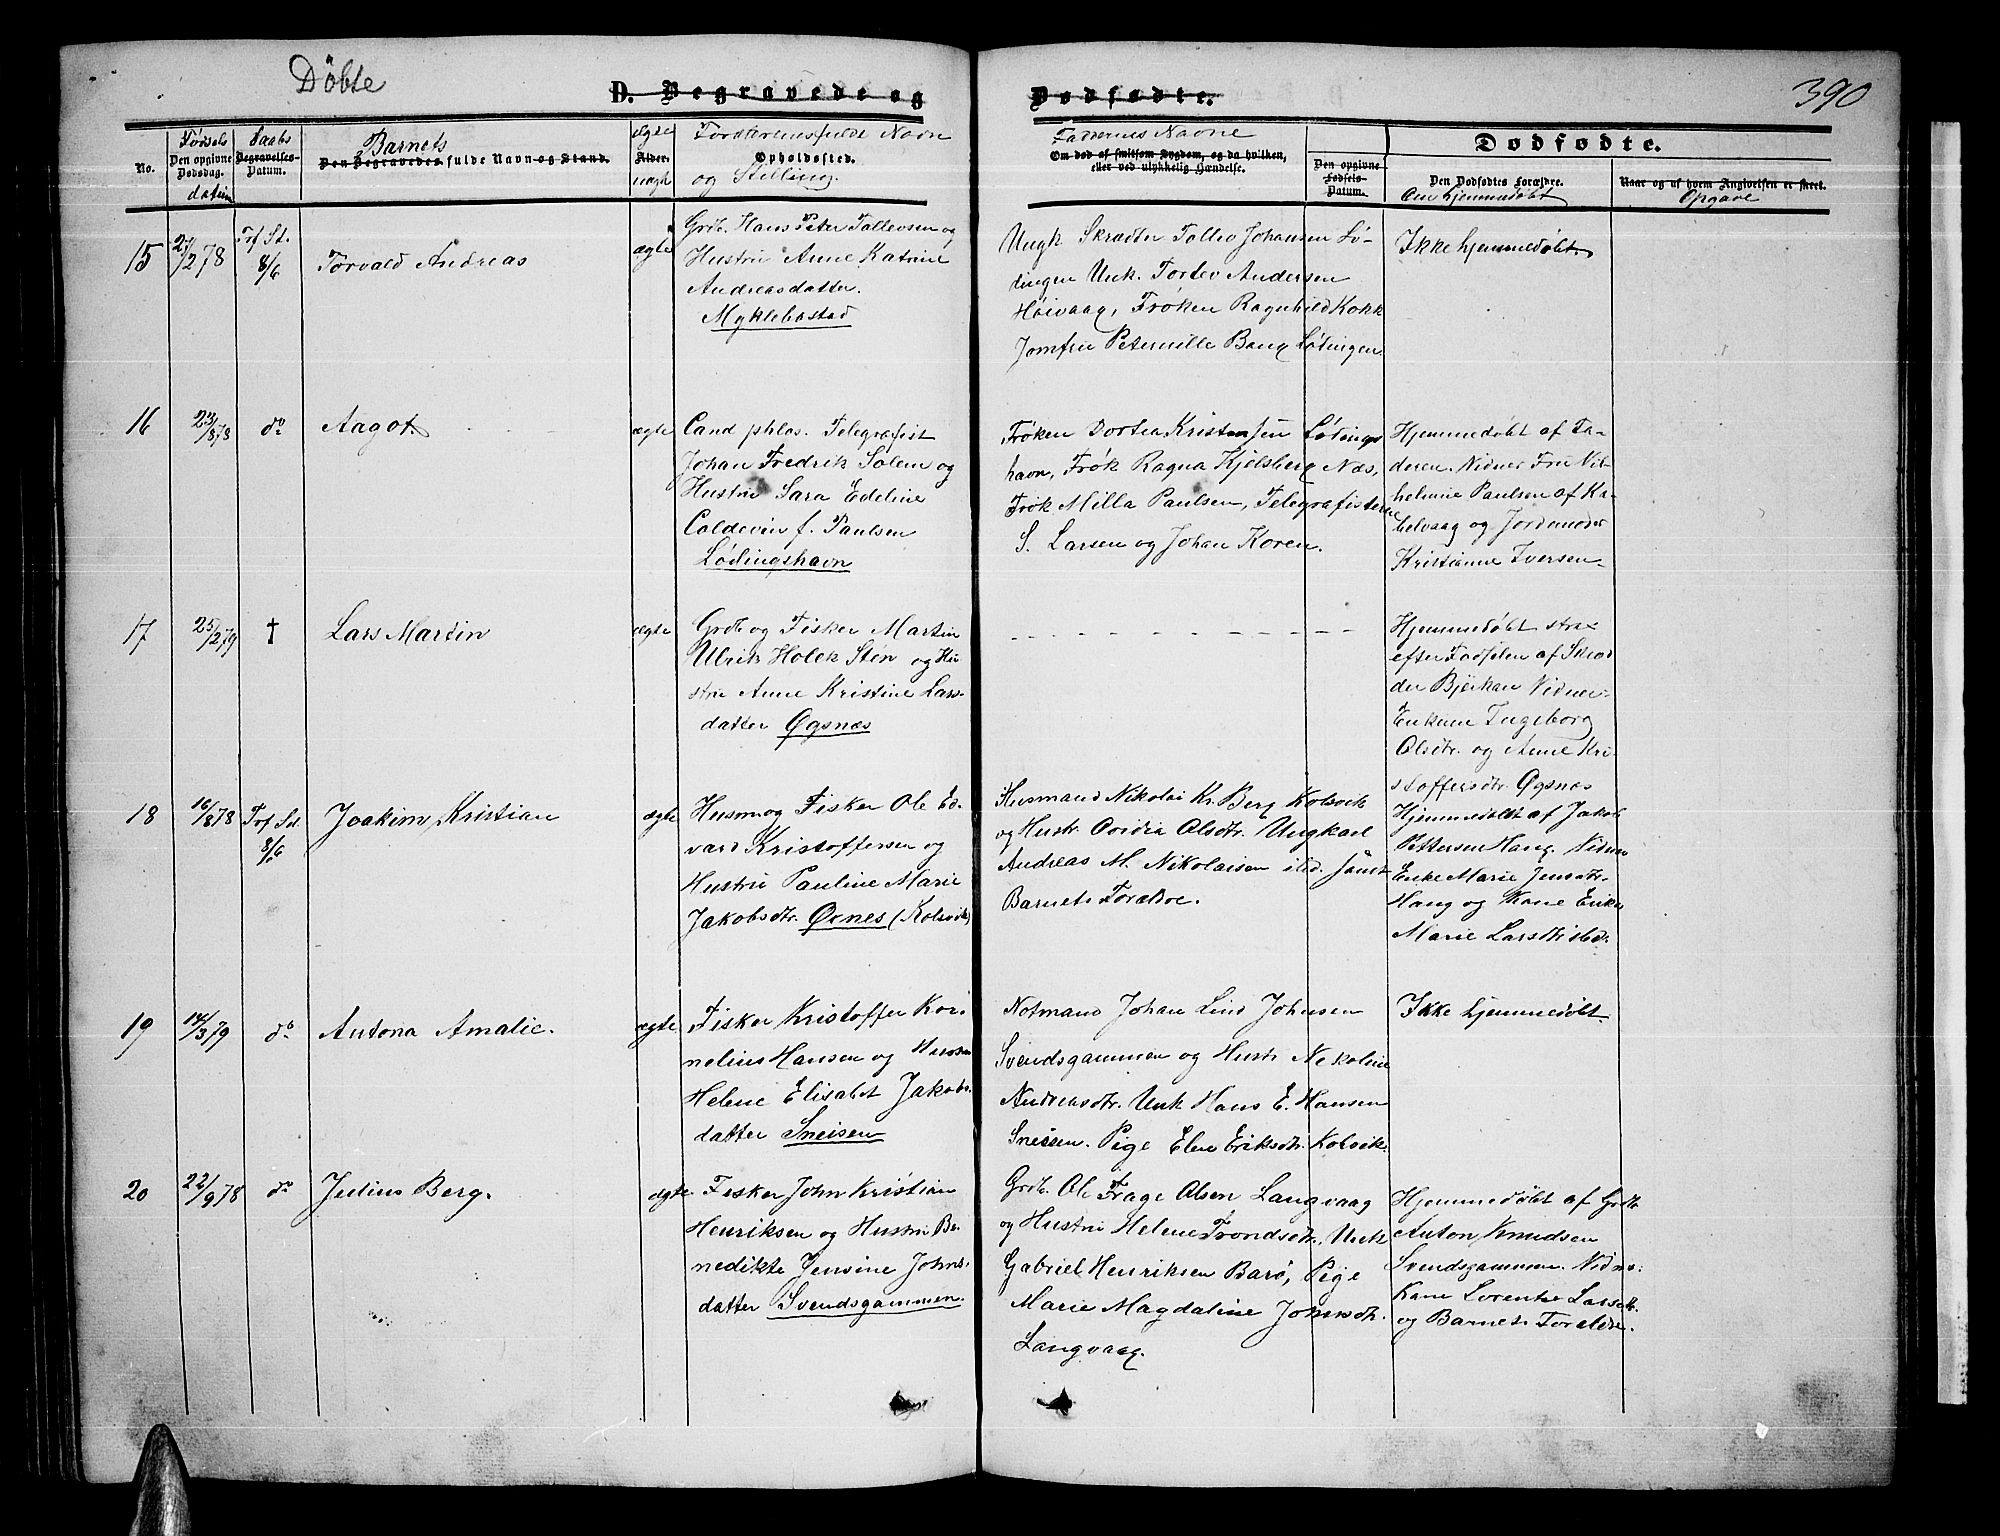 Döbte
D. Begravede og
Dødfødte.
390
No.
Førsels
Den opgivne Dødsdag.
datum
Daabs
Begravelses-Datum.
Barnets
Den Begravedes fulde Navn og Stand.
ægte
Alder.
uægte
Forældrenes fulde Navn
Opholdssted.
og Stilling.
Faddernes Navne
Om død af smitsom Sygdom, og da hvilken,
eller ved ulykkelig Hændelse.
Den opgivne Fødsels-Datum.
Dødfødte.
Den Dødfødtes Forældre.
Om hjemmedøbt
Naar og af hvem Angivelsen er skeet.
Opgave
15
27/2 78
Trf St.
8/6
Torvald Andreas
ægte
Grdb. Hans Peter Tollevsen og
Hustru Anne Katrine
Andreasdatter.
Myklebostad
Ungk Skrædder Tollev Johansen Lø-
dingen Unk. Tortev Andersen
Höivaag, Frøken Ragnhild Kokk
Jomfru Peternille Bang Lødingen
Ikke hjemmedøbt.
16
23/8 78
do
Aagot.
ægte
Cand philos. Telegrafist
Johan Fredrik Solem og
Hustru Sara Edeline
Coldevin f. Paulsen
Lødingshavn
Frøken Dortea Kristensen Lødings
havn, Frøk Ragna Kjelsberg Næs,
Frøk Milla Paulsen, Telegrafisterne
S. Larsen og Johan Koren.
Hjemmedøbt af Fa-
deren. Vidner Fru Vil-
helmine Paulsen af Ka-
belvaag og Jordmoder
Kristianne Iversen
17
25/2 79
†
Lars Martin
ægte
Grdb og Fisker Martin
Ulrik Holck Stën og Hu-
stru Anne Kristine Lars-
datter Øgsnæs
Hjemmedøbt strax
efter Fødselen af Skræd
der Bjerkan Vidner:
Enkene Ingeborg
Olsdtr. og Anne Kri-
stoffersdtr. Øgsnæs
18
16/8 78
Trf St.
8/6
Joakim Kristian
ægte
Husm og Fisker Ole Ed-
vard Kristoffersen og
Hustru Pauline Marie
Jakobsdtr. Ørnes (Kolsvik)
Husmand Nikolai Kr. Berg Kolsvik
og Hustr. Ovidia Olsdtr. Ungkarl
Andreas M. Nikolaisen ibd. samt
Barnets Forældre.
Hjemmedøbt af Jakob
Pettersen Haug. Vidner
Enke Marie Jensdtr.
Haug og Kone Erika
Marie Larsdtr ibd.
19
14/3 79
do
Antona Amalie.
ægte
Fisker Kristoffer Kor-
nelius Hansen og Hustru
Helene Elisabet Jakobs-
datter Sneisen
Notmand Johan Lind Johnsen
Svendsgammen og Hustr Nekoline
Andreasdtr. Unk Hans E. Hansen
Sneisen. Pige Elen Eriksdtr. Kolsvik
Ikke hjemmedøbt.
20
22/9 78
do
Julius Berg.
ægte
Fisker John Kristian
Henriksen og Hustru Be-
nedikte Jensine Johns-
datter Svendsgammen.
Grdb. Ole Frage Olsen Langvaag
og Hustru Helene Trondsdtr. Unk
Gabriel Henriksen Barö, Pige
Marie Magdaline Johnsdtr.
Langvaag.
Hjemmedøbt af Grdb
Anton Knudsen
Svendsgammen. Vidne:
Kone Lorentse Larsdtr.
og Barnets Forældre.